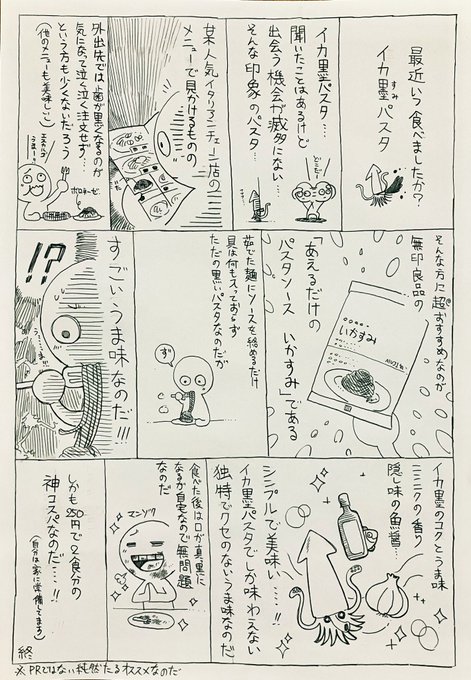 最近いつ食べましたか?
イカ墨パスタ
すみ
イカ墨パスタ…
聞いたことはあるけど
出会う機会が滅多にない…
そんな印象のパスタ…
某人気イタリアンチェーン店の
メニューで見かけるものの
外出先では歯が黒くなるのが
気になって泣く泣く注文せず…
という方も少なくないだろう
(他のメニューも美味しいし)
ボロネーゼ
そんな方に超おすすめなのが
無印良品の
「あえるだけの
パスタソース いかすみ」である
いかすみ
茹でた麺にソースを絡めるだけ
具は何も入っておらず
ただの黒いパスタなのだが
ず
すごいうま味なのだ!!!
!?
イカ墨のコクとうま味
ニンニクの香り
隠し味の魚醤…
シンプルで美味い…!!
イカ墨パスタでしか味わえない
独特でクセのないうま味なのだ
食べた後は口が真黒に
なるが自宅なので無問題
なのだ
マンゾク
しかも250円で2食分の
神コスパなのだ…!!
(自分は家に常備してます)
終
※PRではない純然たるオススメなのだ